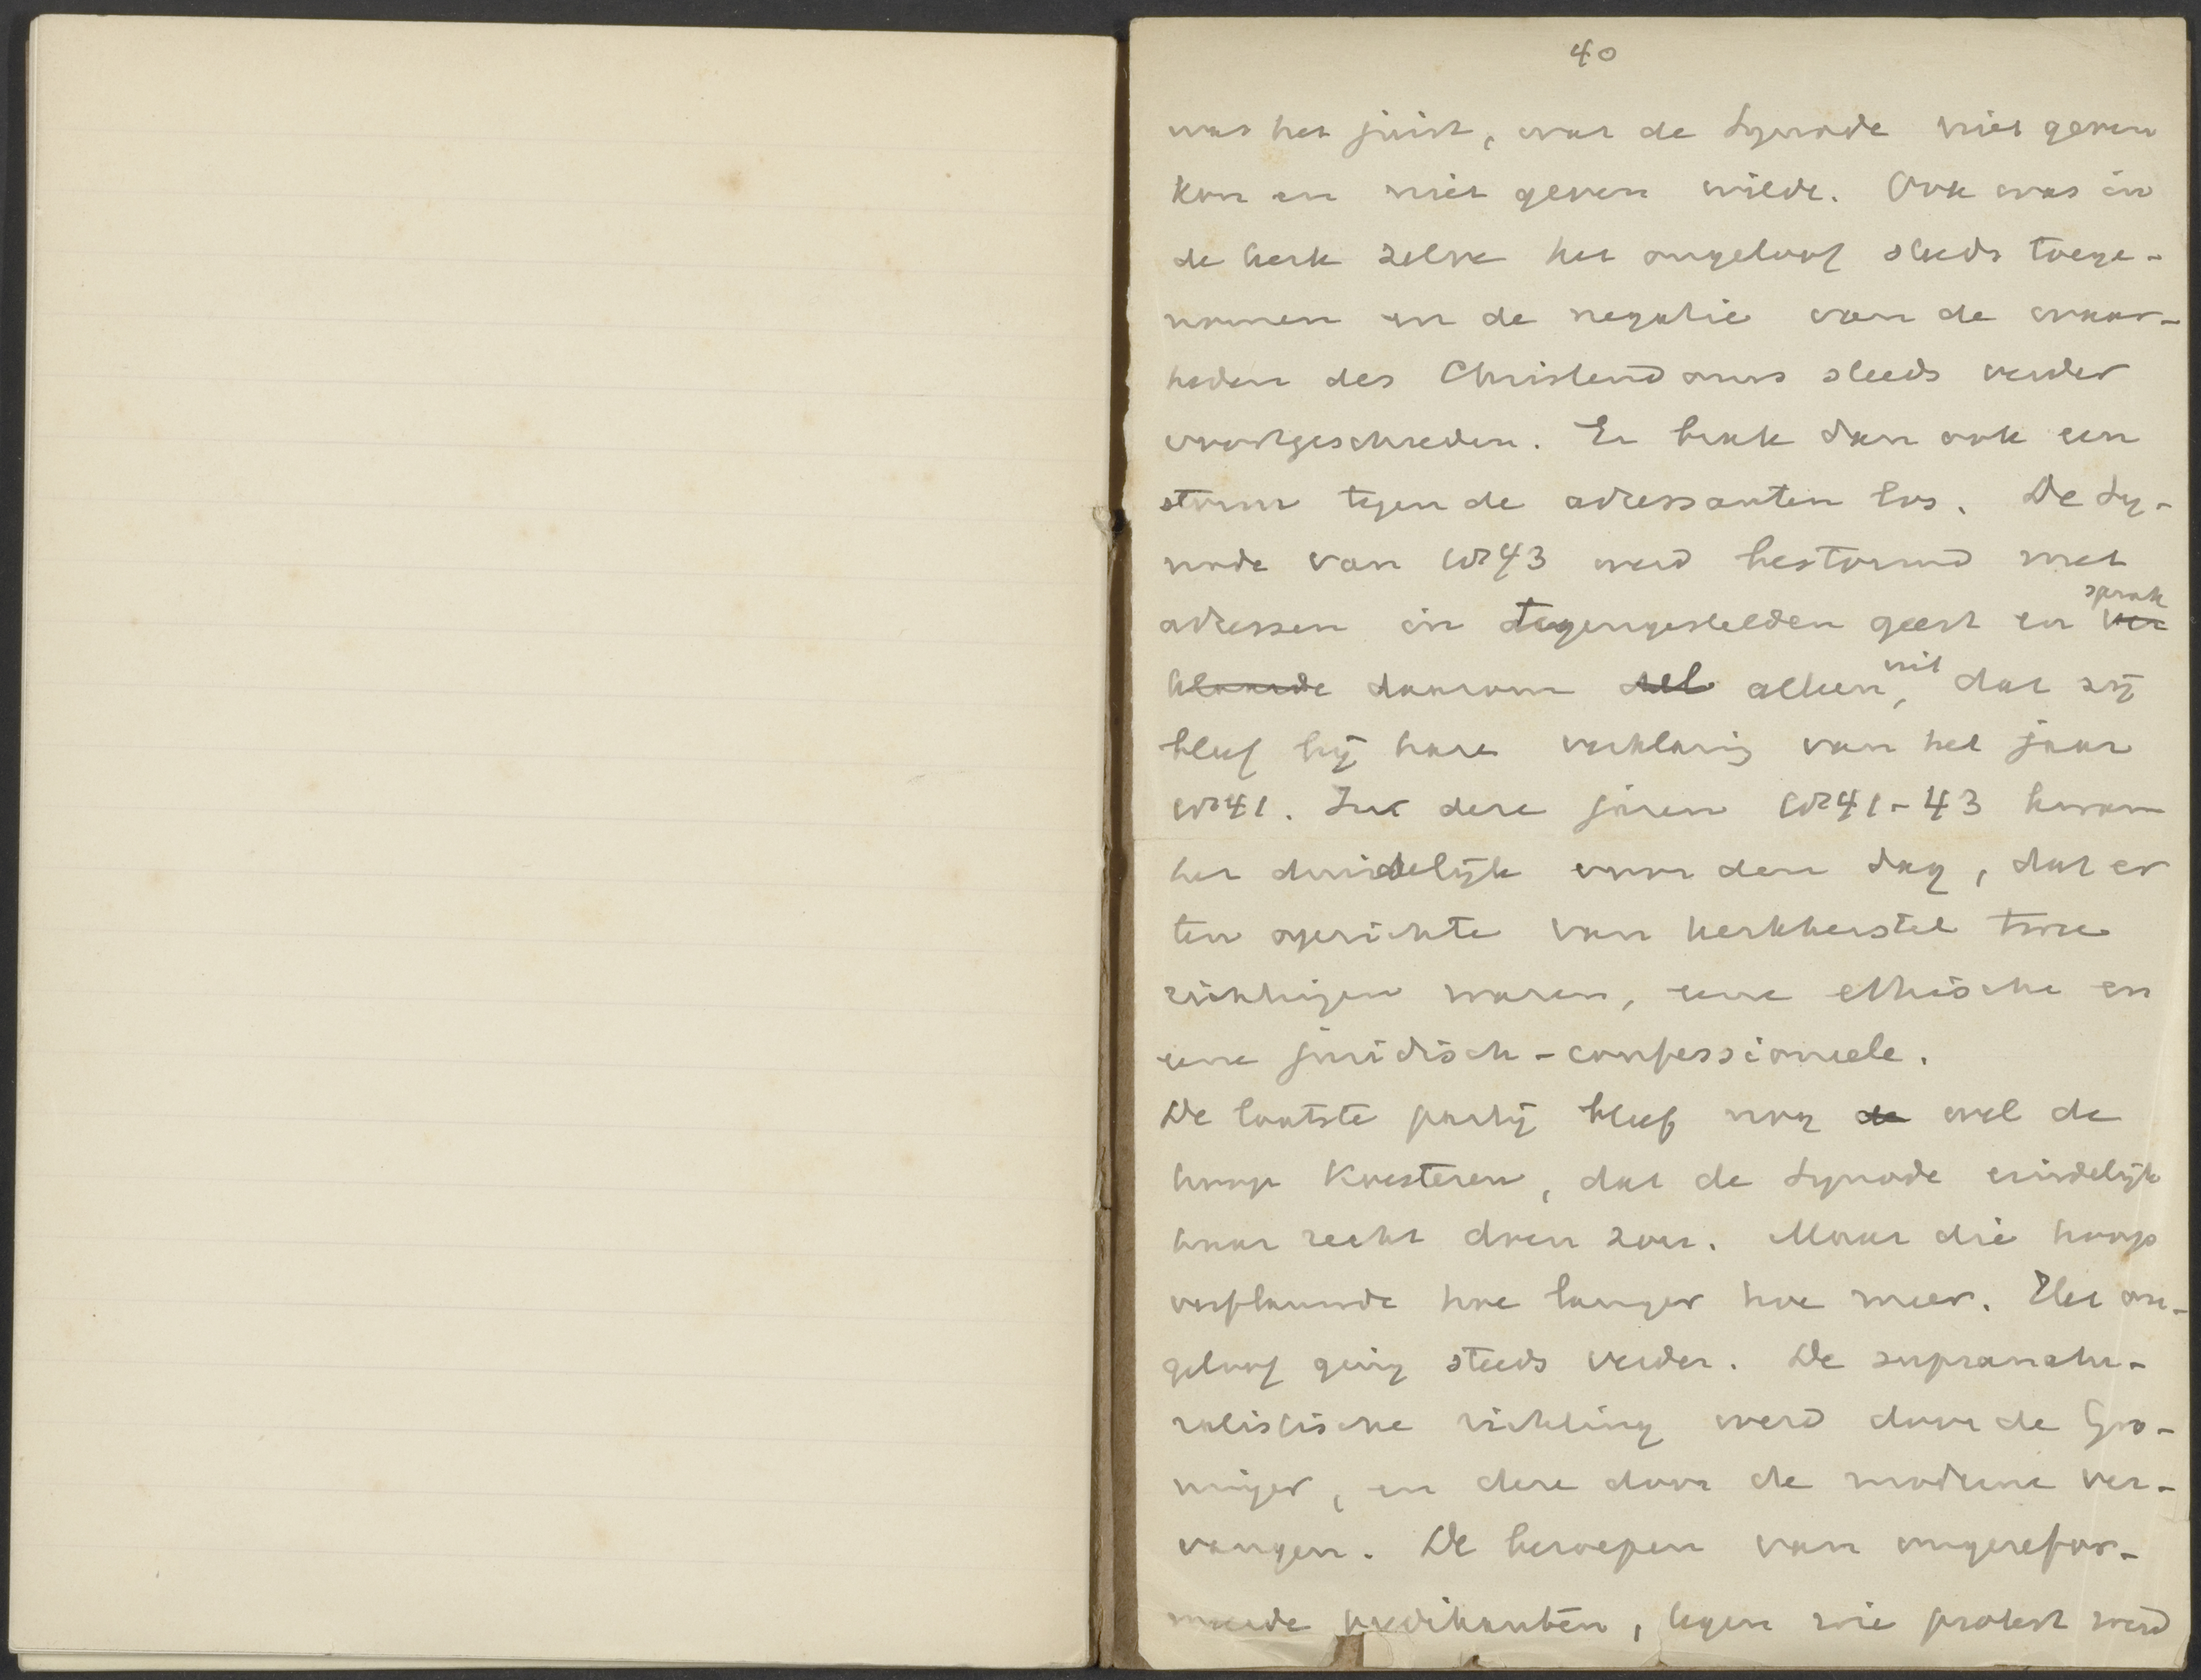 40
was het juist, wat de Synode niet geven
kon en niet geven wilde. Ook was in
de kerk zelve het ongeloof steeds toege-
nomen en de negatie van de waar-
heden des Christendoms steeds verder
voortgeschreden. Er brak dan ook een
storm tegen de adressanten los. De Sy-
node van 1843 werd bestormd met
adressen in tegengestelden geest en ver sprak
klaarde daarom alleen uit, dat zij
bleef bij hare verklaring van het jaar
1841. In deze jaren 1841-43 kwam
het duidelijk voor den dag, dat er
ten opzichte van kerkherstel twee
richtingen waren, eene ethische en
eene juridisch-confessioneele.
De laatste partij bleef nog de wel de
hoop koesteren, dat de Synode eindelijk
haar recht doen zou. Maar die hoop
verflauwde hoe langer hoe meer. Het on-
geloof ging steeds verder. De supranatu-
ralistische richting werd door de Gro-
ninger, en deze door de moderne ver-
vangen. De beroepen van ongerefor-
meerde predikanten, tegen wie protest werd